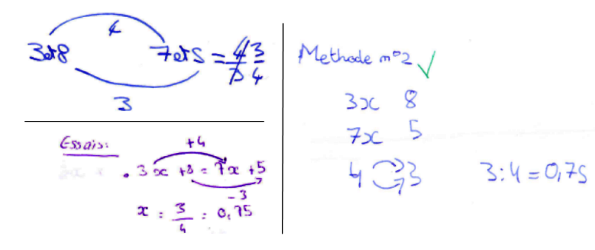 4
3et8 7et5 = 4/3 3/4
3
Essais:
+4
. 3x +8 = 7x +5
-3
x : 3/4 : 0,75
Methode n°2 ✓
3x 8
7x 5
4 3 3:4=0,75